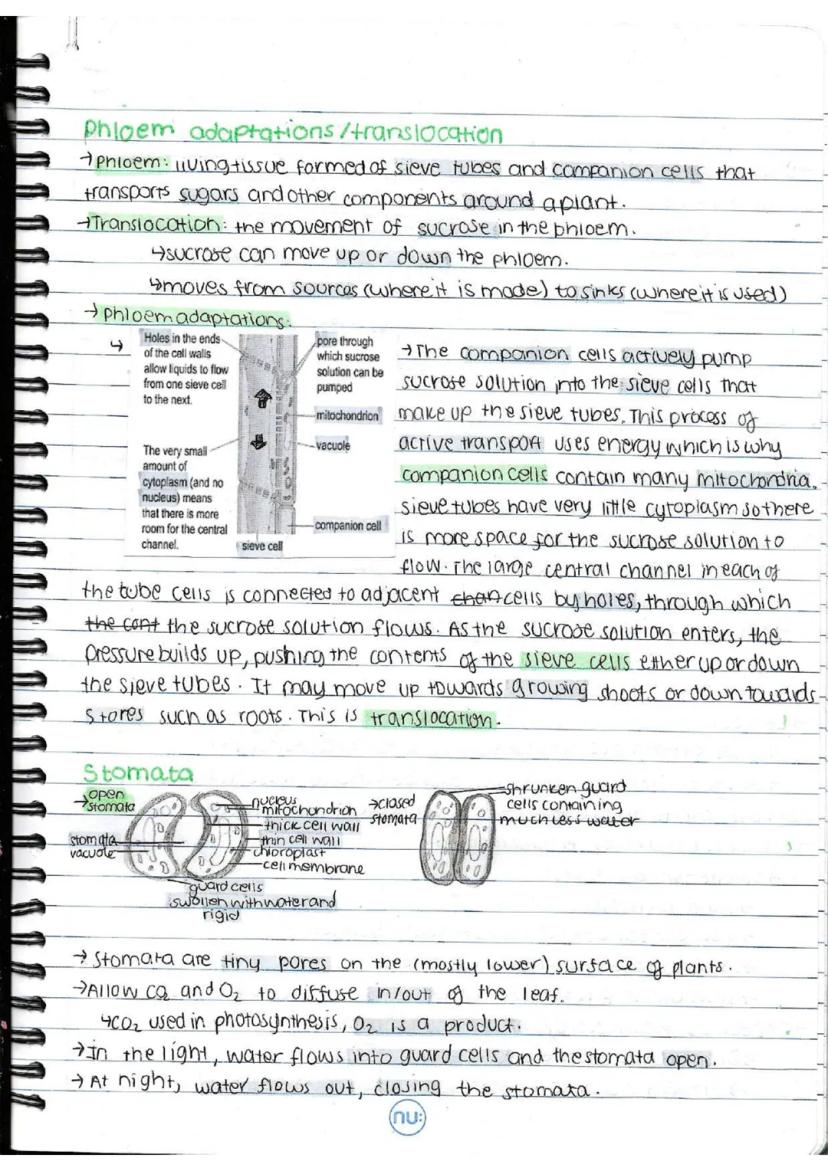 Phloem adaptations/translocation
→Phloem: living tissue formed of sieve tubes and companion cells that
transports sugars and other components around a plant.
→Translocation: the movement of sucrose in the phloem.
↳sucrose can move up or down the phloem.
↳moves from sources (where it is made) to sinks (where it is used)
→Phloem adaptations:
↳
Holes in the ends
of the cell walls
allow liquids to flow
from one sieve cell
to the next.
The very small
amount of
cytoplasm (and no
nucleus) means
that there is more
room for the central
channel.
sieve cell
pore through
which sucrose
solution can be
pumped
mitochondrion
vacuole
companion cell
→The companion cells actively pump
sucrose solution into the sieve cells that
make up the sieve tubes. This process of
active transport uses energy which is why
companion cells contain many mitochondria.
sieve tubes have very little cytoplasm so there
is more space for the sucrose solution to
flow. The large central channel in each of
the tube cells is connected to adjacent chan cells by holes, through which
the cont the sucrose solution flows. As the sucrose solution enters, the
pressure builds up, pushing the contents of the sieve cells either up or down
the sieve tubes. It may move up towards growing shoots or down towards
stores such as roots. This is translocation.
Stomata
→open
stomata
stomata
vacuole
nucleus
mitochondrion
thick cell wall
thin cell wall
chloroplast
cell membrane
guard cells
swollen with water and
rigid
→closed
stomata
shrunken guard
cells containing
much less water
→Stomata are tiny pores on the (mostly lower) surface of plants.
→Allow CO2 and O2 to diffuse in/out of the leaf.
↳CO2 used in photosynthesis, O2 is a product.
→In the light, water flows into guard cells and the stomata open.
→At night, water flows out, closing the stomata.
nu: